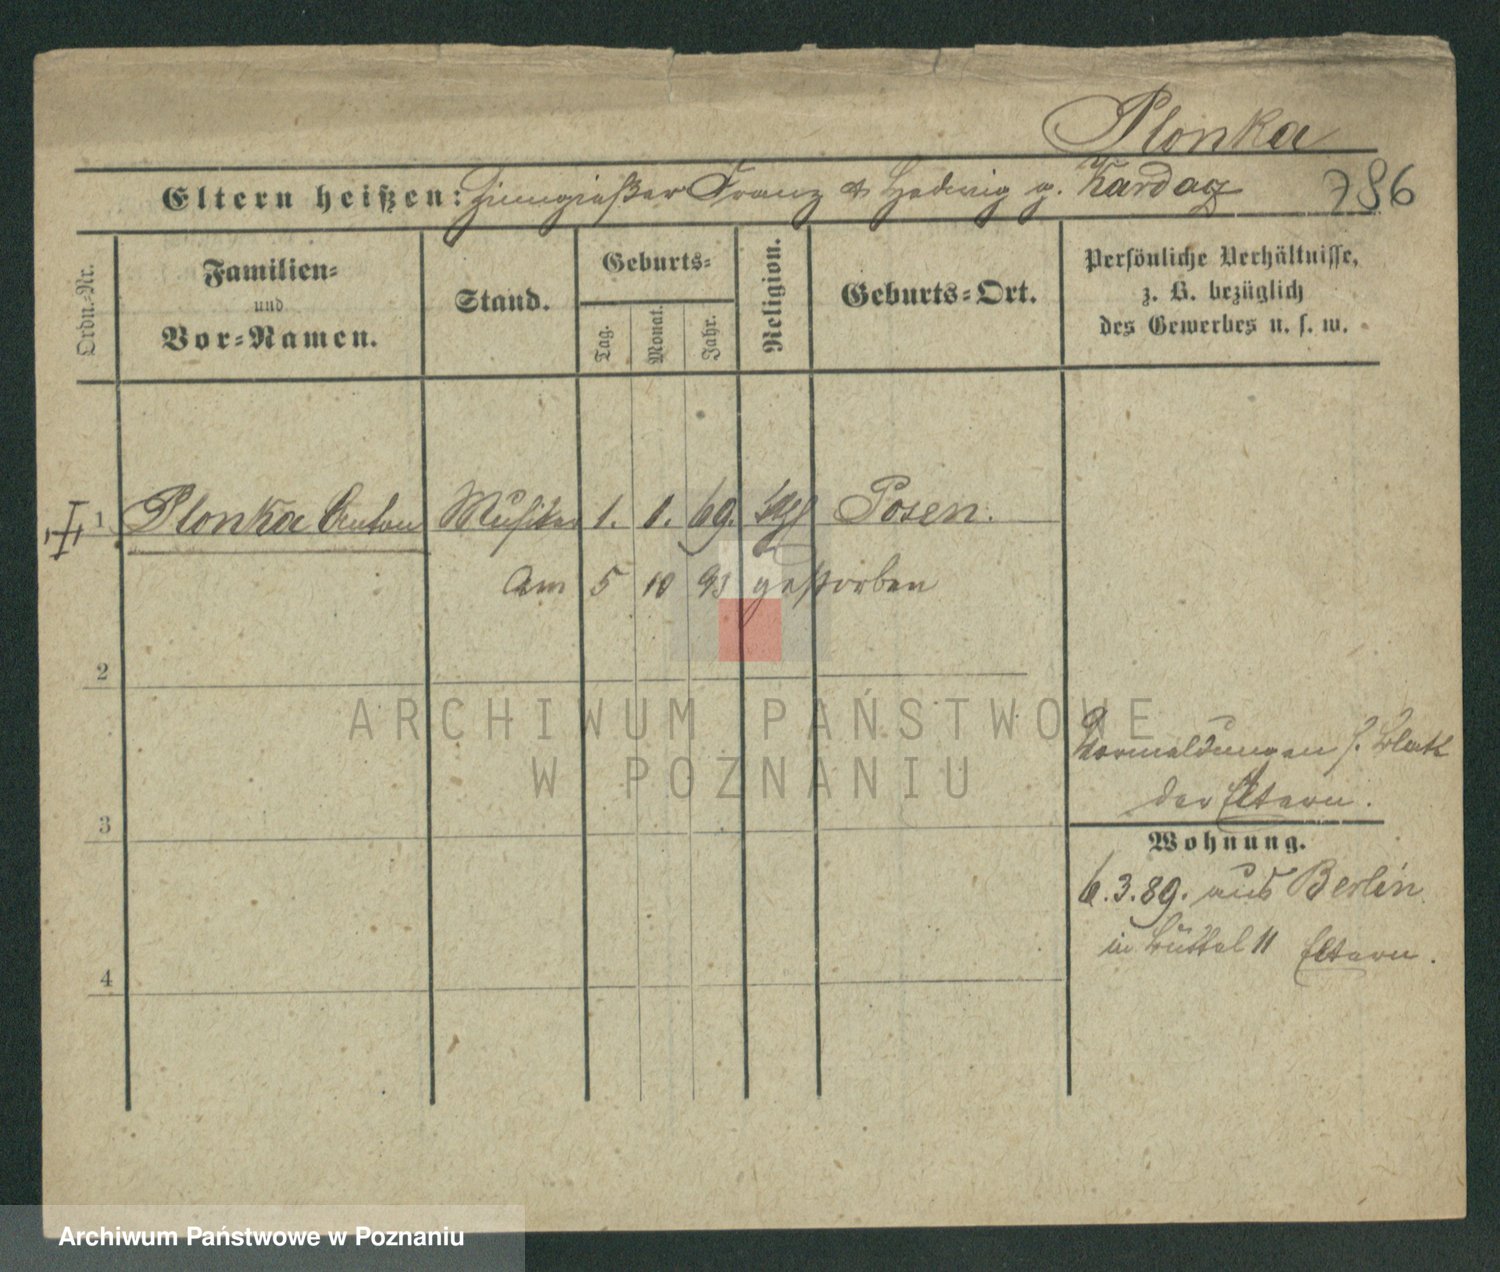 Plonka
Eltern heißen: Zinngießer Franz & Hedwig g. Kardacz
786
Ordn.-Nr.
Familien-
und
Vor-Namen.
Stand.
Geburts-
Tag.
Monat.
Jahr.
Religion.
Geburts-Ort.
Persönliche Verhältnisse,
z. B. bezüglich
des Gewerbes u. s. w.
1 Plonka Anton Musiker 1. 1. 69. kath Posen.
am 5 10 93 gestorben
2
ARCHIWUM PAŃSTWOWE
W POZNANIU
Vormeldungen s. Blatt
der Eltern.
3
Wohnung.
6.3.89. aus Berlin
in Büttel 11 Eltern.
4
Archiwum Państwowe w Poznaniu